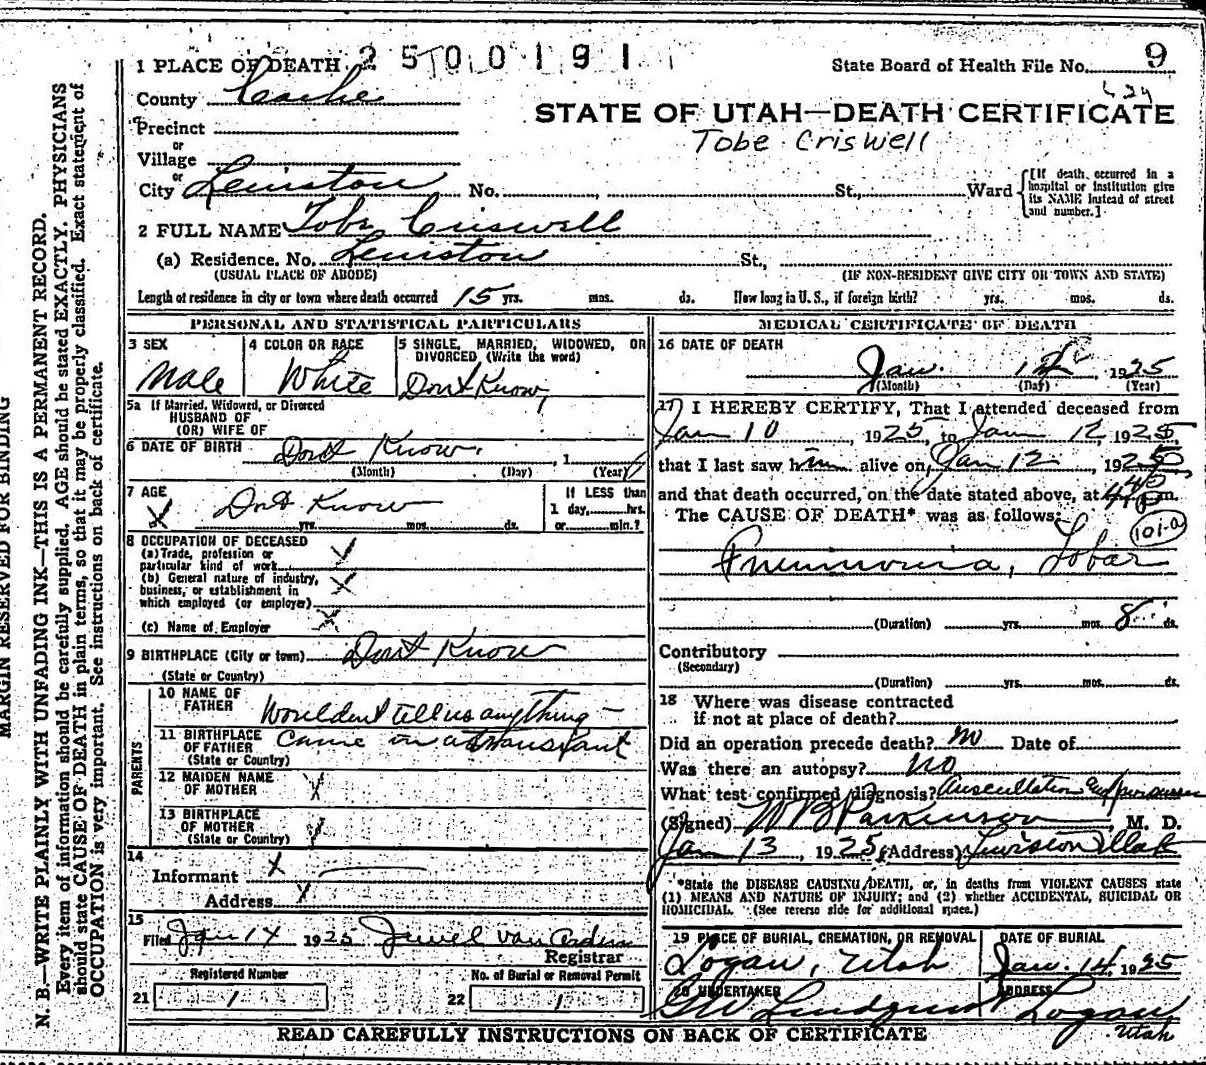 MARGIN RESERVED FOR BINDING
N. B.—WRITE PLAINLY WITH UNFADING INK—THIS IS A PERMANENT RECORD.
Every item of information should be carefully supplied. AGE should be stated EXACTLY. PHYSICIANS
should state CAUSE OF DEATH in plain terms, so that it may be properly classified. Exact statement of
OCCUPATION is very important. See instructions on back of certificate.
1 PLACE OF DEATH 2500191
State Board of Health File No. 9
County Cache
STATE OF UTAH—DEATH CERTIFICATE
Tobe Criswell
Precinct
or
Village
or
City Lewiston No. St., Ward
[If death occurred in a
hospital or institution give
its NAME instead of street
and number.]
2 FULL NAME Tobe Criswell
(a) Residence. No. Lewiston St.,
(USUAL PLACE OF ABODE) (IF NON-RESIDENT GIVE CITY OR TOWN AND STATE)
Length of residence in city or town where death occurred 15 yrs. mos. ds. How long in U. S., if foreign birth? yrs. mos. ds.
PERSONAL AND STATISTICAL PARTICULARS
3 SEX
Male
4 COLOR OR RACE
White
5 SINGLE, MARRIED, WIDOWED, OR
DIVORCED (Write the word)
Dont Know
5a If Married, Widowed, or Divorced
HUSBAND OF
(OR) WIFE OF
6 DATE OF BIRTH Dont Know. , 1
(Month) (Day) (Year)
7 AGE
Dont Know
yrs. mos. ds.
If LESS than
1 day, hrs.
or min.?
8 OCCUPATION OF DECEASED
(a) Trade, profession or
particular kind of work
(b) General nature of industry,
business, or establishment in
which employed (or employer)
(c) Name of Employer
9 BIRTHPLACE (City or town) Dont Know
(State or Country)
PARENTS
10 NAME OF
FATHER Wouldent tell us anything —
11 BIRTHPLACE
OF FATHER came in a transient
(State or Country)
12 MAIDEN NAME
OF MOTHER
13 BIRTHPLACE
OF MOTHER
(State or Country)
14
Informant X
Address
15
Filed Jan 14 1925 Jewel Van Orden
Registrar
Registered Number
21 1
No. of Burial or Removal Permit
22 1
MEDICAL CERTIFICATE OF DEATH
16 DATE OF DEATH
Jan. 12 , 1925
(Month) (Day) (Year)
17 I HEREBY CERTIFY, That I attended deceased from
Jan 10 , 1925, to Jan 12, 1925,
that I last saw him alive on, Jan 12 , 1925
and that death occurred, on the date stated above, at m.
The CAUSE OF DEATH* was as follows:
101-a
Pneumonia, Lobar
(Duration) yrs. mos. 8 ds.
Contributory
(Secondary)
(Duration) yrs. mos. ds.
18 Where was disease contracted
if not at place of death?
Did an operation precede death? no Date of
Was there an autopsy? no
What test confirmed diagnosis? Auscultation and percussion
(Signed) W B Parkinson, M. D.
Jan 13 , 1925 (Address) Lewiston Utah
*State the DISEASE CAUSING DEATH, or, in deaths from VIOLENT CAUSES state
(1) MEANS AND NATURE OF INJURY; and (2) whether ACCIDENTAL, SUICIDAL OR
HOMICIDAL. (See reverse side for additional space.)
19 PLACE OF BURIAL, CREMATION, OR REMOVAL
Logan, Utah
DATE OF BURIAL
Jan. 14, 1925
20 UNDERTAKER
Lindquist
ADDRESS
Logan
Utah
READ CAREFULLY INSTRUCTIONS ON BACK OF CERTIFICATE